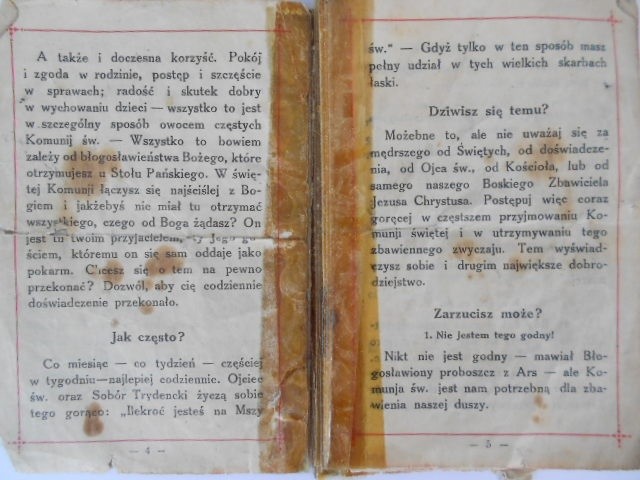 A także i doczesna korzyść. Pokój
i zgoda w rodzinie, postęp i szczęście
w sprawach; radość i skutek dobry
w wychowaniu dzieci — wszystko to jest
w szczególny sposób owocem częstych
Komunij św. — Wszystko to bowiem
zależy od błogosławieństwa Bożego, które
otrzymujesz u Stołu Pańskiego. W świę-
tej Komunji łączysz się najściślej z Bo-
giem i jakżebyś nie miał tu otrzymać
wszystkiego, czego od Boga żądasz? On
jest tu twoim przyjacielem,
ściem, któremu on się sam oddaje jako
pokarm. Chcesz się o tem na pewno
przekonać? Dozwól, aby cię codziennie
doświadczenie przekonało.
Jak często?
Co miesiąc — co tydzień — częściej
w tygodniu—najlepiej codziennie. Ojciec
św. oraz Sobór Trydencki życzą sobie
tego gorąco: „Ilekroć jesteś na Mszy
— 4 —
św." — Gdyż tylko w ten sposób masz
pełny udział w tych wielkich skarbach
łaski.
Dziwisz się temu?
Możebne to, ale nie uważaj się za
mędrszego od Świętych, od doświadcze-
nia, od Ojca św., od Kościoła, lub od
samego naszego Boskiego Zbawiciela
Jezusa Chrystusa. Postępuj więc coraz
goręcej w częstszem przyjmowaniu Ko-
munji świętej i w utrzymywaniu tego
zbawiennego zwyczaju. Tem wyświad-
czysz sobie i drugim największe dobro-
dziejstwo.
Zarzucisz może?
1. Nie jestem tego godny!
Nikt nie jest godny — mawiał Bło-
gosławiony proboszcz z Ars — ale Ko-
munja św. jest nam potrzebną dla zba-
wienia naszej duszy.
— 5 —